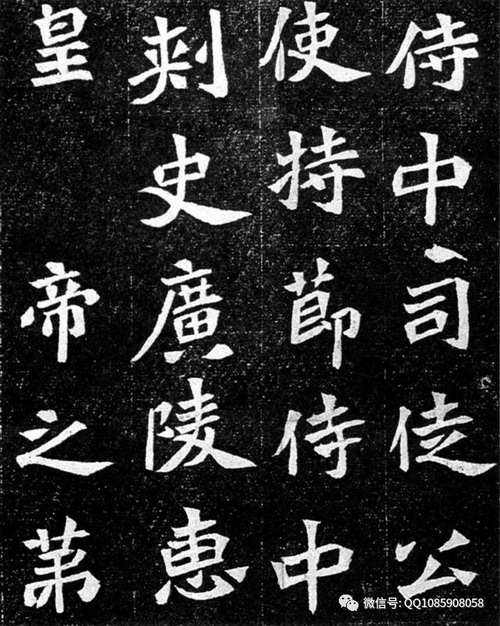 侍中司徒公
使持節侍中
刺史廣陵惠
皇帝之第
微信号: QQ1085908058